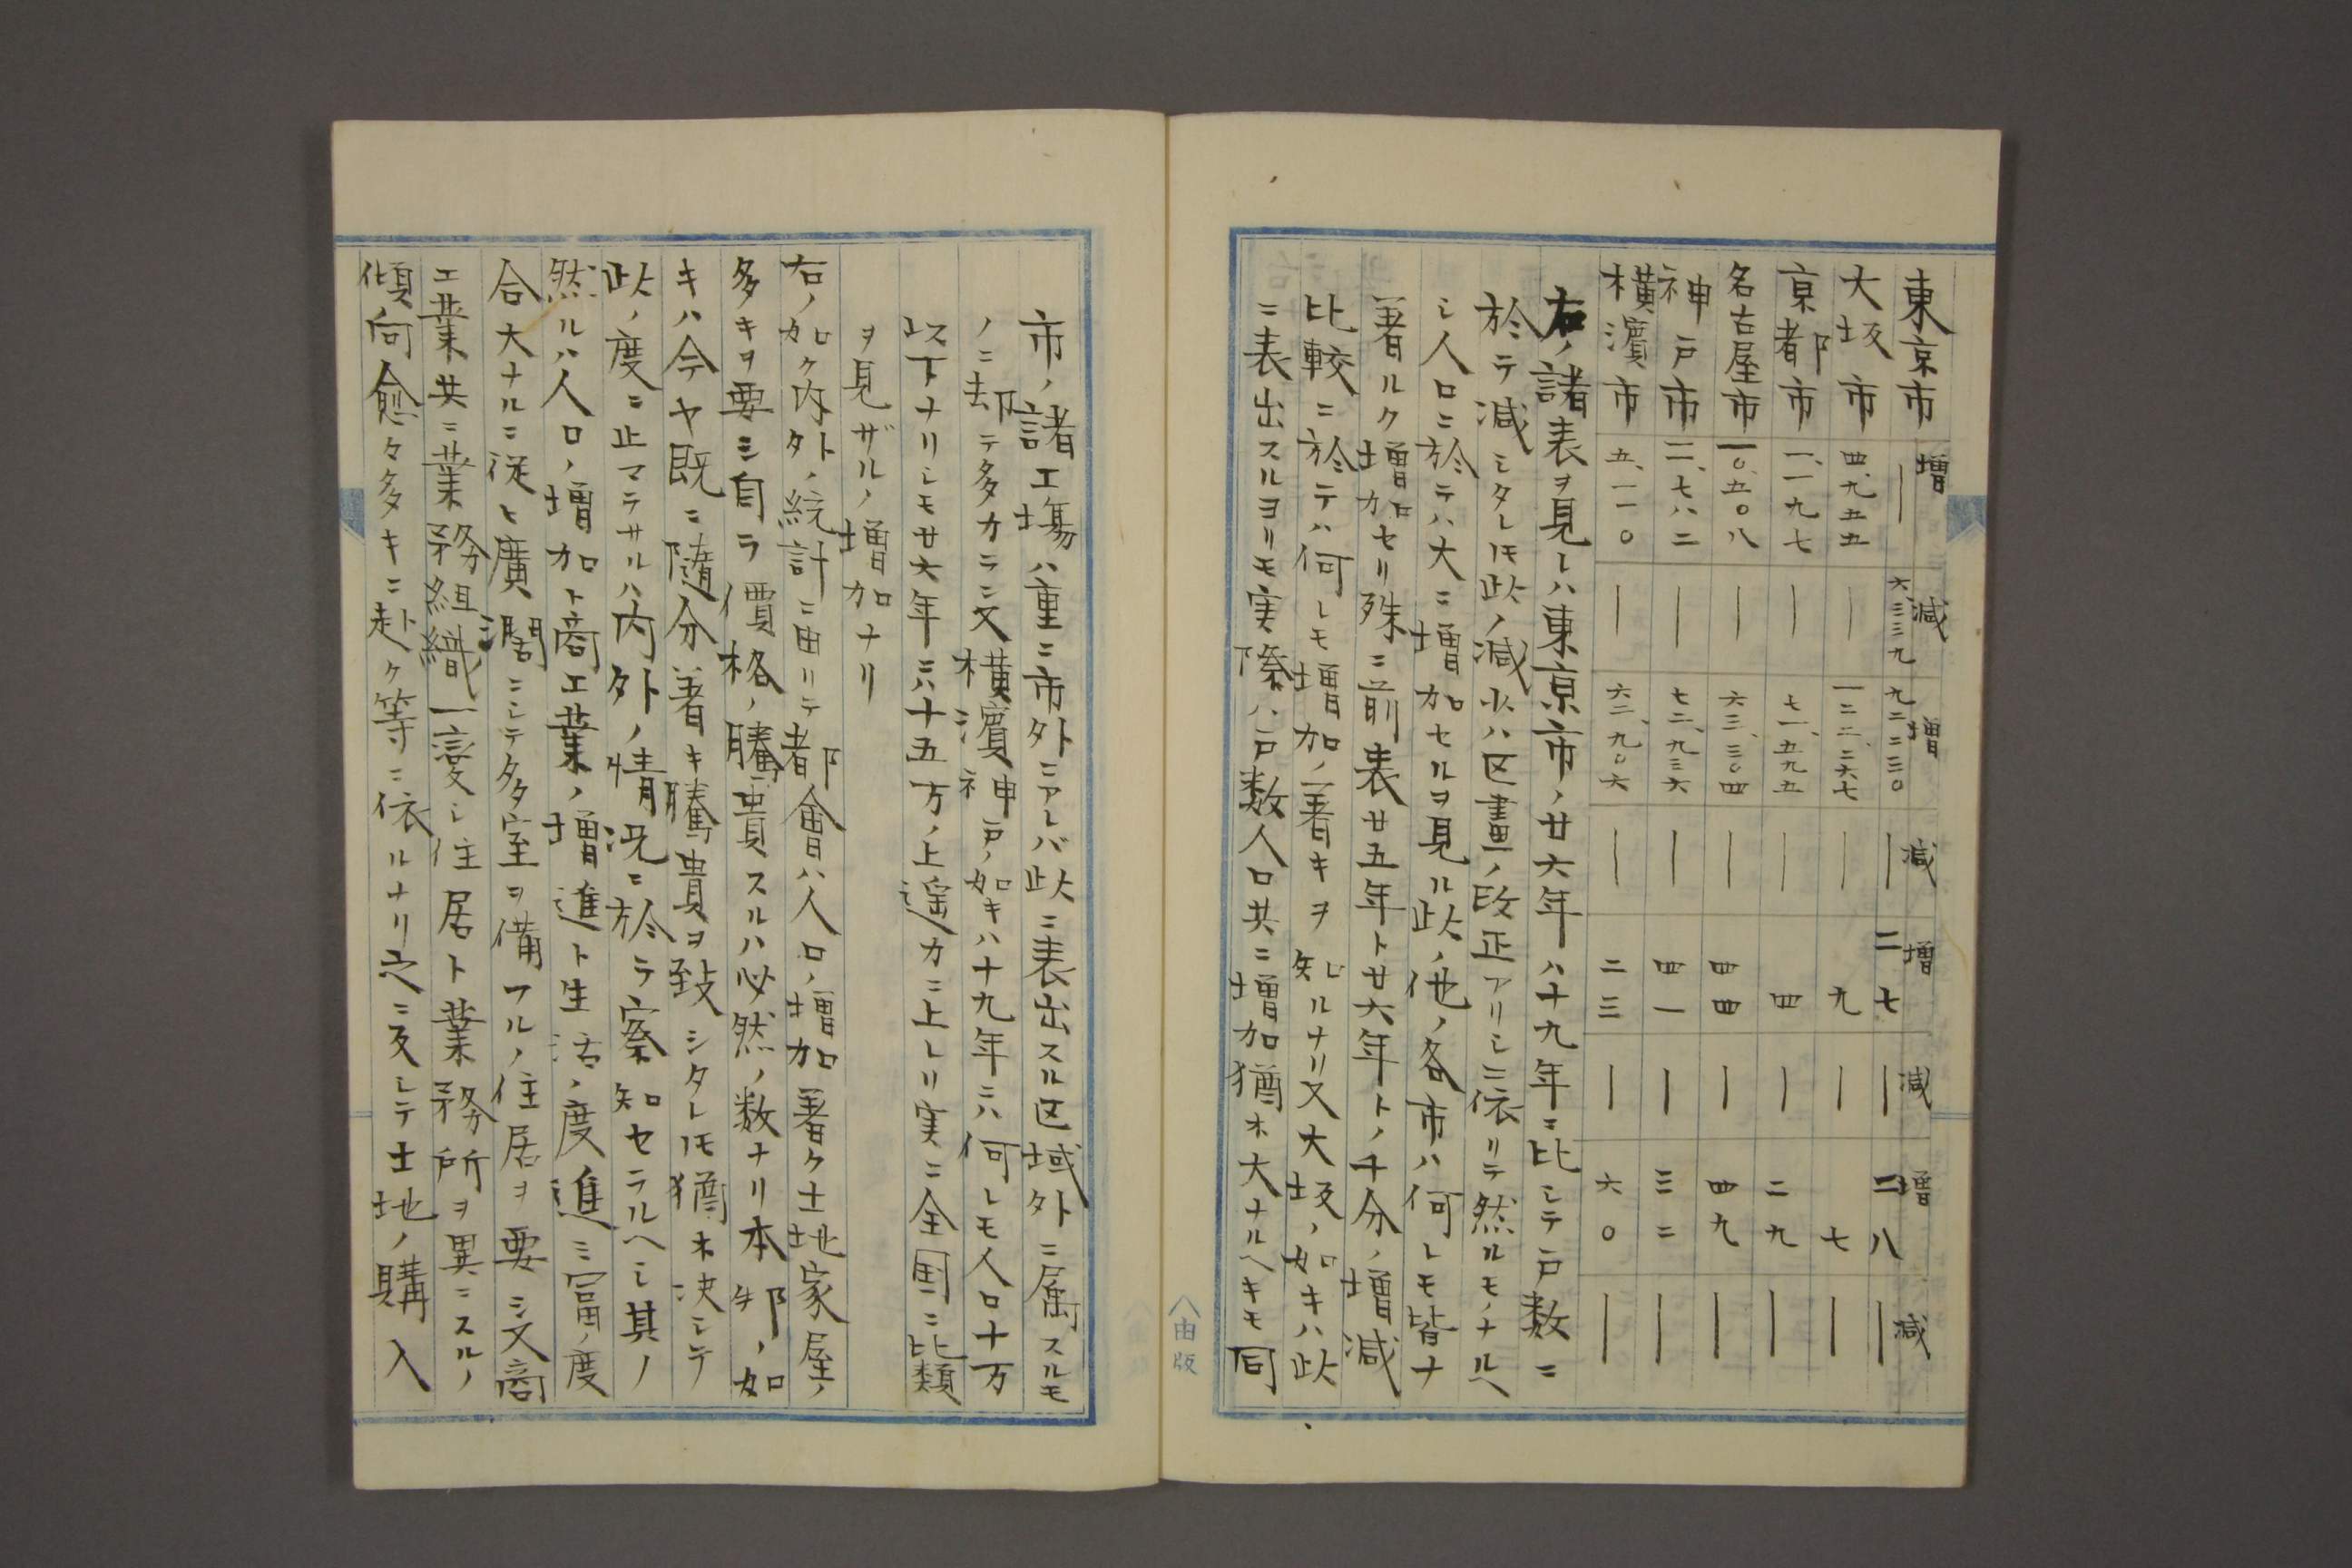 増 減 増 減 増 減 増 減
東京市 ― 六、三三九 九二、二三〇 ― 二七 ― 二八 ―
大坂市 四、九五五 ― 一二二、二六七 ― 九 ― 七 ―
京都市 一、一九七 ― 七一、五九五 ― 四 ― 二九 ―
名古屋市 一〇、五〇八 ― 六三、三〇四 ― 四四 ― 四九 ―
神戸市 一一、七八二 ― 七二、九三六 ― 四一 ― 三二 ―
横濱市 五、一一〇 ― 六二、九〇六 ― 二三 ― 六〇 ―
右ノ諸表ヲ見レハ東京市ノ廿六年ハ十九年ニ比シテ戸数ニ
於テ減シタレ𪜈此ノ減少ハ区畫ノ改正アリシニ依リテ然ルモノナルヘ
シ人口ニ於テハ大ニ増加セルヲ見ル此ノ他ノ各市ハ何レモ皆ナ
著ルク増加セリ殊ニ前表廿五年ト廿六年トノ千分ノ増減
比較ニ於テハ何レモ増加ノ著キヲ知ルナリ又大坂ノ如キハ此
ニ表出スルヨリモ実際ハ戸数人口共ニ増加猶ホ大ナルヘキモ同
市ノ諸工塲ハ重ニ市外ニアレバ此ニ表出スル区域外ニ属スルモ
ノニ却テ多カラン又横濱神戸ノ如キハ十九年ニハ何レモ人口十万
以下ナリシモ廿六年ニハ十五万ノ上遥カニ上レリ実ニ全国ニ比類
ヲ見ザルノ増加ナリ
右ノ如ク内外ノ統計ニ由リテ都會ハ人口ノ増加著ク土地家屋ノ
多キヲ要シ自ラ價格ノ騰貴スルハ必然ノ数ナリ本邦ノ如
キハ今ヤ既ニ随分著キ騰貴ヲ致シタレ𪜈猶ホ決シテ
此ノ度ニ止マラサルハ内外ノ情況ニ於ラ察知セラルヘシ其ノ
然ルハ人口ノ増加ト商工業ノ増進ト生活ノ度進ミ富ノ度
合大ナルニ従ヒ廣濶ニシテ多室ヲ備フルノ住居ヲ要シ又商
工業共ニ業務組織一変シ住居ト業務所ヲ異ニスルノ
傾向愈々多キニ赴ク等ニ依ルナリ之ニ反シテ土地ノ購入
八由版